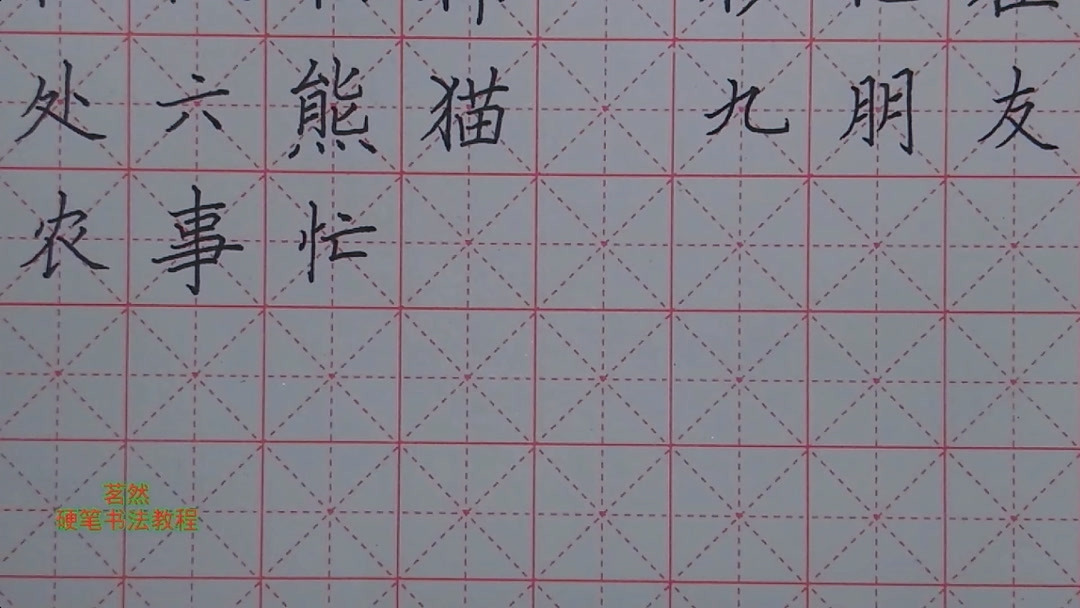 处六熊猫 九朋友
农事忙
茗然
硬笔书法教程